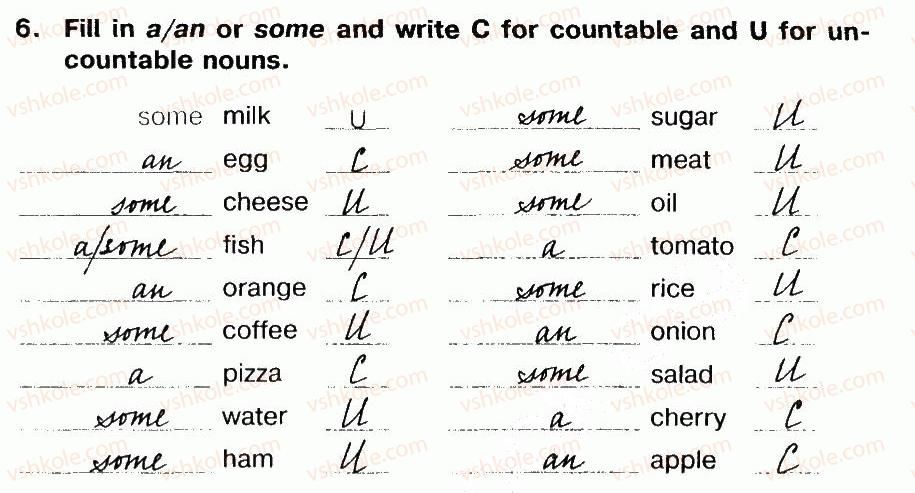 6. Fill in a/an or some and write C for countable and U for un-
countable nouns.
some milk U some sugar U
an egg C some meat U
some cheese U some oil U
a/some fish C/U a tomato C
an orange C some rice U
some coffee U an onion C
a pizza C some salad U
some water U a cherry C
some ham U an apple C